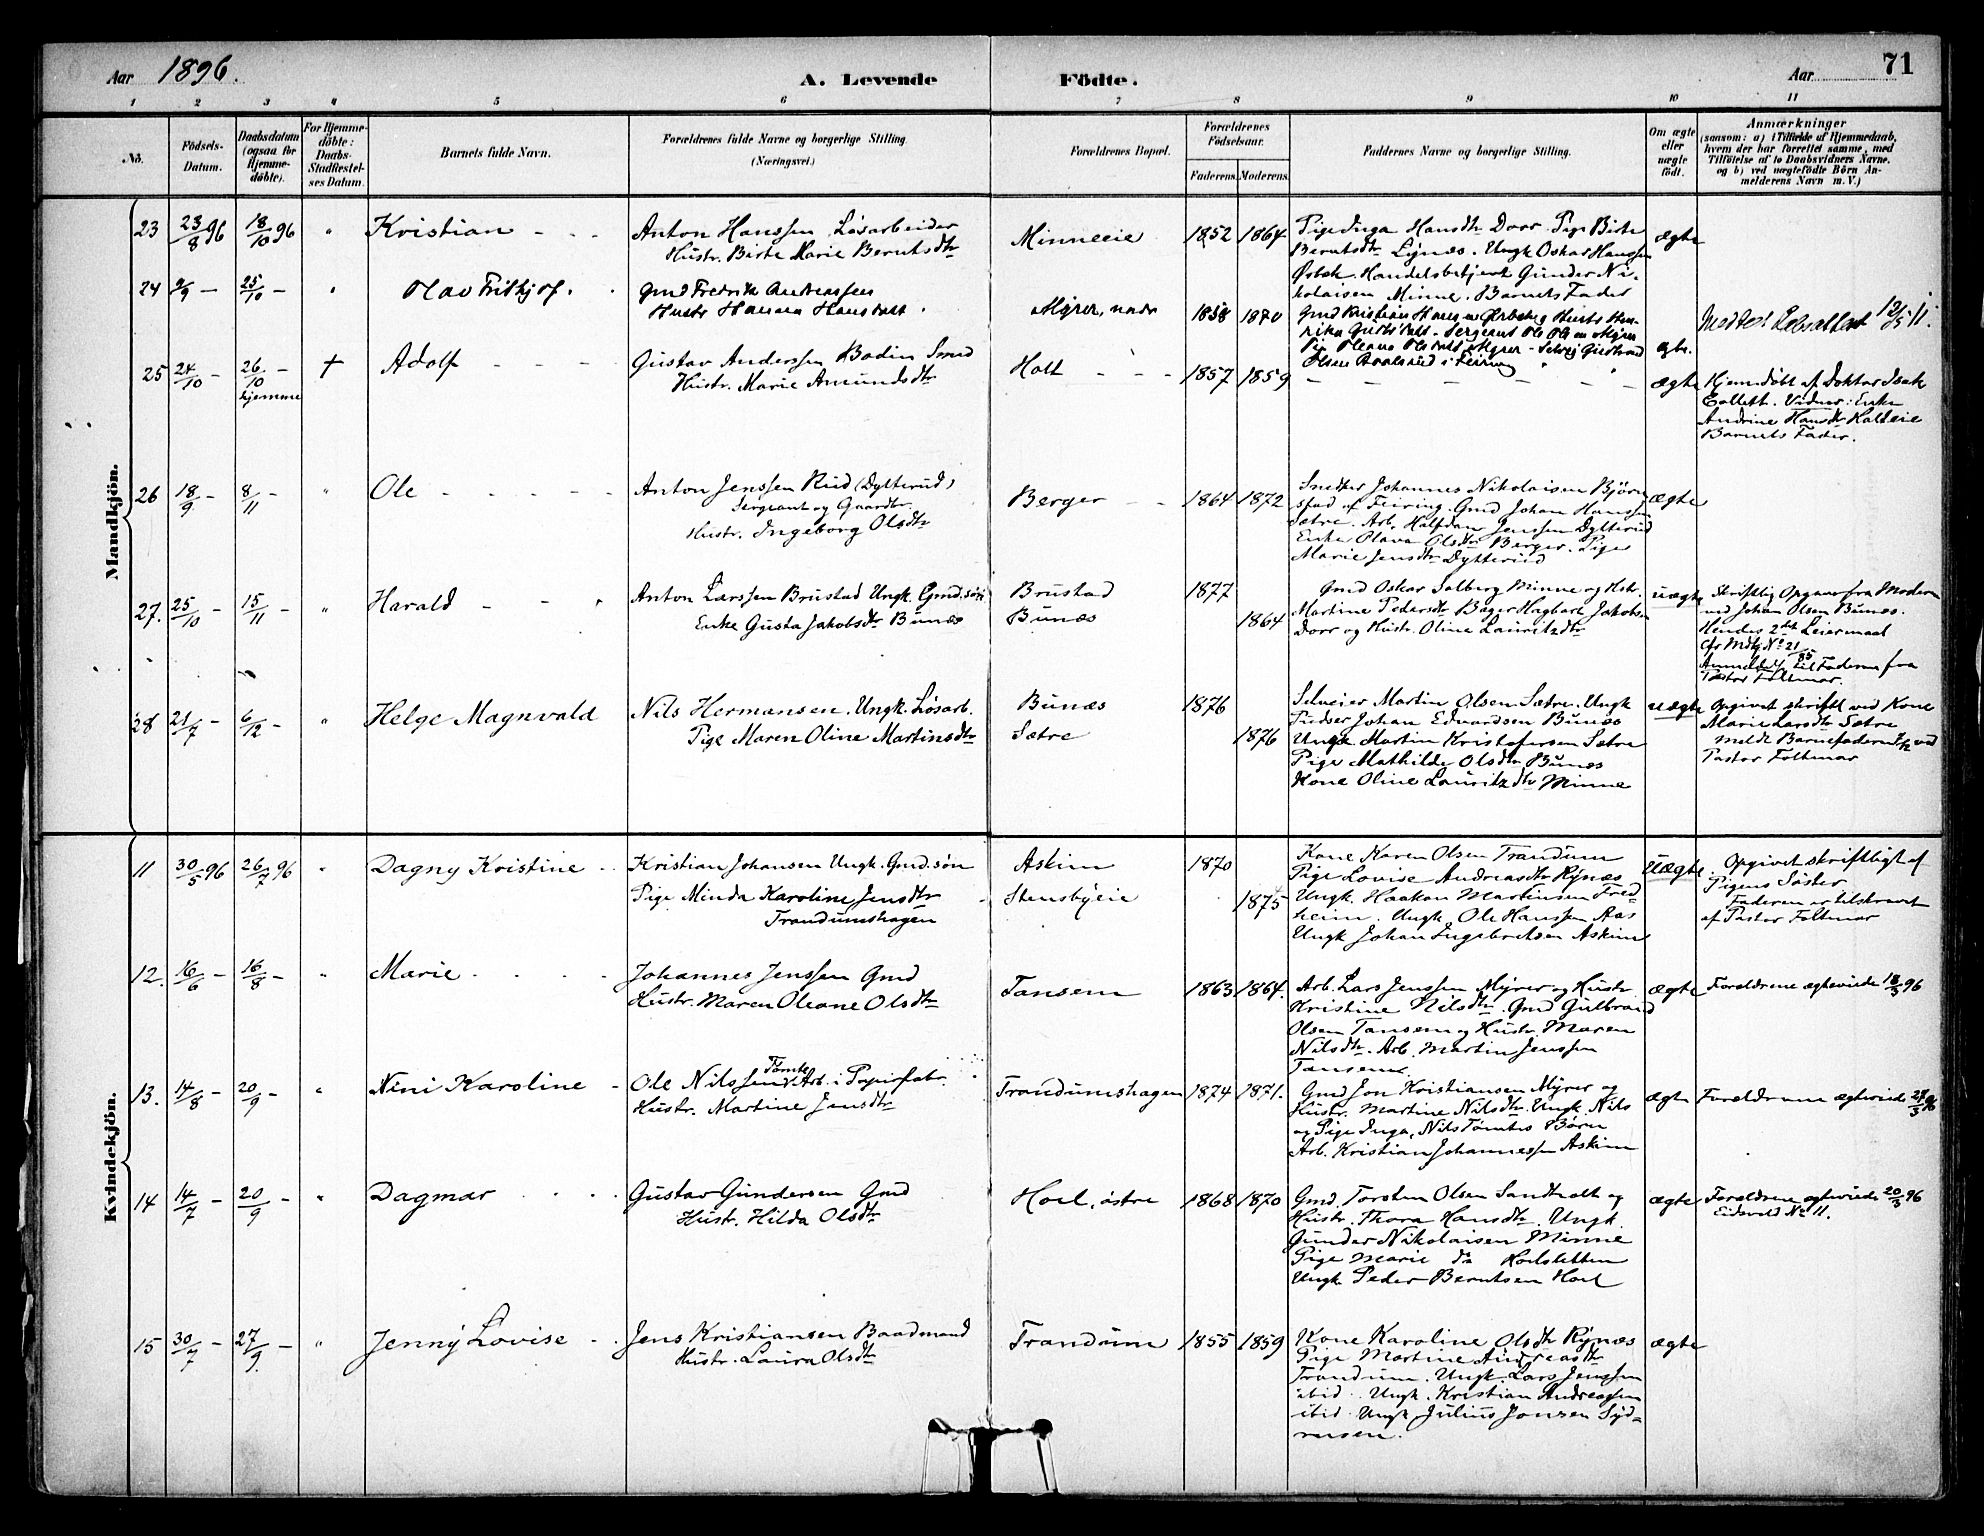 Aar 1896.
A. Levende
Födte.
Aar
71
1 2 3 4 5 6 7 8 9 10 11
No.
Födsels-
Datum.
Daabsdatum
(ogsaa for
Hjemme-
döbte).
For Hjemme-
döbte:
Daabs-
Stadfæstel-
ses Datum.
Barnets fulde Navn.
Forældrenes fulde Navne og borgerlige Stilling.
(Næringsvei.)
Forældrenes Bopæl.
Forældrenes
Födselsaar.
Faderens.
Moderens.
Faddernes Navne og borgerlige Stilling.
Om ægte
eller
uægte
födt.
Anmærkninger
(saasom: a) i Tilfælde af Hjemmedaab,
hvem der har forrettet samme, med
Tilföielse af to Daabsvidners Navne.
og b) ved uægtefödte Börn An-
melderens Navn m. V.)
Mandkjön.
23 23/8 96 18/10 96 " Kristian
Anton Hanssen Løsarbeider
Hustr. Birte Marie Berntsdtr
Minneeie 1852 1864
Pige Inga Hansdtr Dorr. Pige Birte
Berntsdtr Lynæs. Ungk Oskar Hanssen
Ørbæk. Handelsbetjent Gunder Ni-
kolaisen Minne. Barnets Fader
ægte
24 2/9 – 25/10 – " Olav Frithjof.
Gmd Fredrik Andreassen
Hustr Hanna Hansdatt.
Myrer, nedr 1858 1870
Gmd Kristian Hansen Ørbæk og Hustr Hen-
rika Gulbrdatt. Sergeant Ole Olsen Myrer
Pige Oleava Olsdatt Myrer
Olsen i Feiring
ægte.
Meddel. Løbsattest 12/5 11.
25 24/10 – 26/10 – hjemme † Adolf
Gustav Anderssen Bodin Smed
Hustr. Marie Amundsdtr
Holt 1857 1859
ægte
Hjemdøbt af Doktor Isak
Collett. Vidner: Enke
Andrine Hansdtr Holteie
Barnets Fader.
26 18/9 – 8/11 – " Ole
Anton Jenssen Rud (Dytterud)
Sergeant og Gaardbr.
Hustr. Ingeborg Olsdtr
Berger 1864 1872
Snedker Johannes Nikolaisen Bjørn
stad af Feiring. Gmd Johan Hanssen
Sætre. Arb. Halfdan Jenssen Dytterud
Enke Olava Olsdtr Berger. Pige
Marie Jensdtr Dytterud
ægte
27. 25/10 – 15/11 – " Harald
Anton Larssen Brustad Ungk. Gmd.søn
Enke Gusta Jakobsdtr Bunæs
Brustad 1877
Bunæs 1864
Gmd Oskar Solberg Minne og Hstr.
Martine Pedersdtr Bager Hagbart Jakobsen
Dorr og Hustr. Oline Lauritzdtr
uægte
Skriftlig Opgave fra Moderen
ved Johan Olsen Bunæs.
Hendes 2det Leiermaal
Cfr Mdkj No 21/85
Anmeldt til Faderen fra
Pastor Foltmar.
28 21/7 – 6/12 – " Helge Magnvald
Nils Hermansen. Ungk. Løsarb.
Pige Maren Oline Martinsdtr
Bunæs 1876
Sætre 1876
Selveier Martin Olsen Sætre. Ungk
Pudser Johan Edvardsen Bunæs
Ungk Martin Kristofersen Sætre
Pige Mathilde Olsdtr Bunæs
Kone Oline Lauritzdtr Minne
uægte
Opgivet skriftl ved Kone
Marie Larsdtr Sætre
Meldt Barnefaderen 7/12 ved
Pastor Foltmar
Kvindekjön.
11 30/5 96 26/7 96 " Dagny Kristine
Kristian Johansen Ungk. Gmd.søn
Pige Minda Karoline Jensdtr
Trandumshagen
Askim 1870
Stensbyeie 1875
Kone Karen Olsen Trandum
Pige Lovise Andreasdtr Rynæs
Ungk. Haakon Martinsen Fred-
heim. Ungk. Ole Hanssen Aas
Ungk Johan Ingebretsen Askim
Uægte.
Opgivet skriftligt af
Pigens Søster
Faderen er tilskrevet
af Pastor Foltmar
12. 16/6 – 16/8 – " Marie
Johannes Jenssen Gmd
Hustr. Maren Oleane Olsdtr
Tansem 1863 1864.
Arb. Lars Jenssen Myrer og Hustr
Kristine Nilsdtr. Gmd Gulbrand
Olsen Tansem og Hustr. Maren
Nilsdtr. Arb. Martin Jenssen
Tansem.
ægte
Forældrene ægteviede 18/3 96
13. 14/8 – 20/9 – " Nini Karoline
Ole Nilssen Tømte Arb. i Papirfabr.
Hustr. Martine Jensdtr
Trandumshagen 1874 1871.
Gmd Jon Kristiansen Myrer og
Hustr. Martine Nilsdtr. Ungk. Nils
og Pige Inga, Nils Tømtes Børn
Arb. Kristian Johannessen Askim
ægte
Forældrene ægteviede 27/3 96
14 14/7 – 20/9 – " Dagmar
Gustav Gundersen Gmd
Hustr. Hilda Olsdtr
Hoel, østre 1868 1870
Gmd. Torsten Olsen Sandholt og
Hustr. Thora Hansdtr. Ungk.
Gunder Nikolaisen Minne
Pige Marie do Hoelsletten
Ungk Peder Berntsen Hoel
ægte
Forældrene ægteviede 20/3 96
Eidsvold No 11.
15 30/7 – 27/9. – " Jenny Lovise
Jens Kristiansen Baadmand
Hustr. Laura Olsdtr
Trandum 1855 1859
Kone Karoline Olsdtr Rynæs
Pige Martine Andreasdtr
Trandum. Ungk. Lars Jenssen
ibid. Ungk. Kristian Andreassen
ibid. Ungk Julius Jonsen Syd-
rusen.
ægte